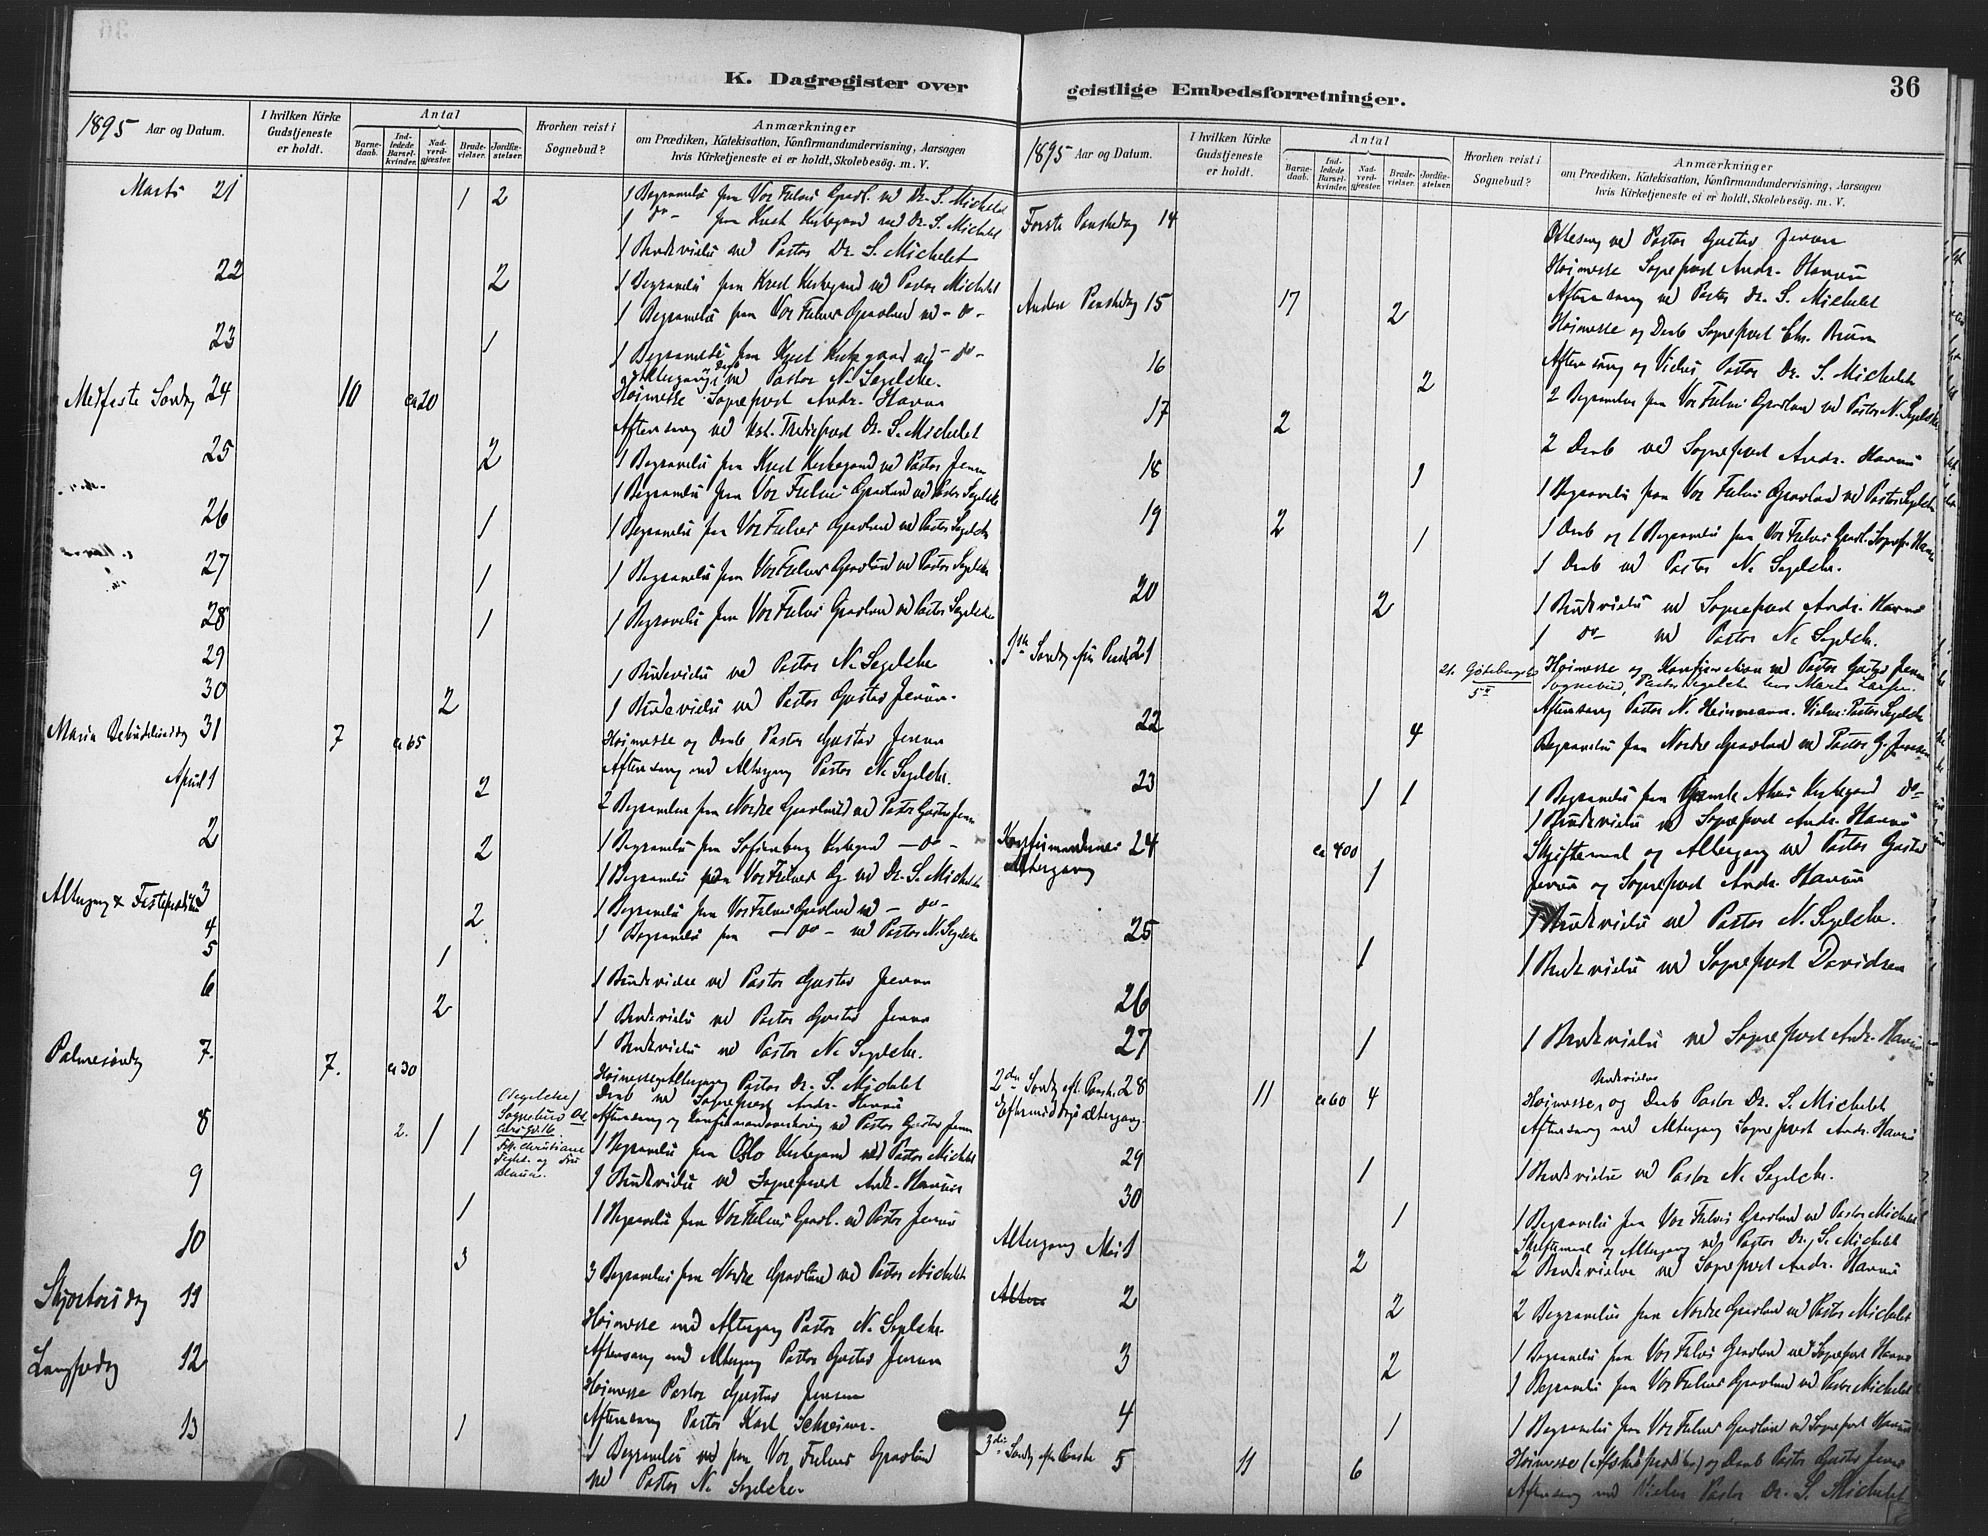 K. Dagregister over
1895 Aar og Datum.
I hvilken Kirke Gudstjeneste er holdt.
Antal
Barne-daab.
Ind-ledede Barsel-kvinder.
Nad-verd-gjæster.
Brude-vielser.
Jordfæ-stelser.
Hvorhen reist i Sognebud?
Anmærkninger
om Prædiken, Katekisation, Konfirmandundervisning, Aarsagen
hvis Kirketjeneste ei er holdt, Skolebesög. m. V.
Marts 21 1 2 1 Begravelse fra Vor Frelsers Gravl. ved Dr. S. Michelet
1 do- fra Krist Kirkegaard ved Dr. S. Michelet
1 Brudevielse ved Pastor Dr. S. Michelet
22 2 1 Begravelse fra Krist Kirkegaard ved Pastor Michelet
1 Begravelse fra Vor Frelsers Gravlund ved - do -
23 1 1 Begravelse fra Krist Kirkegaard ved - do -
ved Pastor N. Segelcke.
Midfaste Søndag 24 10 ca 20 Høimesse Sogneprest Andr. Hansen
Aftensang ved Dr. S. Michelet
25 2 1 Begravelse fra Krist Kirkegaard ved Pastor Jensen
1 Begravelse fra Vor Frelsers Gravlund ved Pastor Segelcke
26 1 1 Begravelse fra Vor Frelsers Gravlund ved Pastor Segelcke
27 1 1 Begravelse fra Vor Frelsers Gravlund ved Pastor Segelcke
28 1 1 Begravelse fra Vor Frelsers Gravlund ved Pastor Segelcke
29
1 Brudevielse ved Pastor N. Segelcke
30 2 1 Brudevielse ved Pastor Gustav Jensen.
Maria Bebudelsesdag 31 7 ca 65 Høimesse og Daab Pastor Gustav Jensen
Aftensang med Altergang Pastor N. Segelcke.
April 1 2 2 Begravelser fra Nordre Gravlund ved Pastor Gustav Jensen
2 2 1 Begravelse fra Sofienberg Kirkegaard - do -
1 Begravelse fra Vor Frelsers Gr. ved Dr. S. Michelet
Altergang & Fasteprædiken 3
4 2 1 Begravelse fra Vor Frelsers Gravlund ved - do -
1 Begravelse fra - do - ved Pastor N. Segelcke
5 1 1 Brudevielse ved Pastor Gustav Jensen
6 2 1 Brudevielse ved Pastor Gustav Jensen
1 Brudevielse ved Pastor N. Segelcke.
Palmesøndag 7. 7. ca 30 Høimesse Altergang Pastor Dr. S. Michelet
Daab ved Sogneprest Andr. Hansen
Aftensang og ved Pastor Gustav Jensen
8 2. 1 1 (Segelcke) Sognebud 1 Begravelse fra Oslo Kirkegaard ved Pastor Michelet
1 Brudevielse ved Sogneprest Andr. Hansen
9 1 1 Begravelse fra Vor Frelsers Gravl. ved Pastor Jensen
10 3 3 Begravelser fra Nordre Gravlund ved Pastor Michelet
Skjærtorsdag 11 Høimesse med Altergang Pastor N. Segelcke.
Aftensang med Altergang Pastor Gustav Jensen
Langfredag 12 Høimesse Pastor Gustav Jensen
Aftensang Pastor Karl Schreiner.
13 1 1 Begravelse ved fra Vor Frelsers Gravlund
ved Pastor N. Segelcke.
geistlige Embedsforretninger.
36
1895 Aar og Datum.
I hvilken Kirke Gudstjeneste er holdt.
Antal
Barne-daab.
Ind-ledede Barsel-kvinder.
Nad-verd-gjæster.
Brude-vielser.
Jordfæ-stelser.
Hvorhen reist i Sognebud?
Anmærkninger
om Prædiken, Katekisation, Konfirmandundervisning, Aarsagen
hvis Kirketjeneste ei er holdt, Skolebesög. m. V.
Første Paaskedag 14 Ottesang ved Pastor Gustav Jensen
Høimesse Sogneprest Andr. Hansen
Aftensang ved Pastor Dr. S. Michelet
Anden Paaskedag 15 17 2 Høimesse og Daab Sogneprest Chr. Bruun
Aftensang og Vielser Pastor Dr. S. Michelet
16 2 2 Begravelser fra Vor Frelsers Gravlund ved Pastor N. Segelcke
17 2 2 Daab ved Sogneprest Andr. Hansen
18 1 1 Begravelse fra Vor Frelsers Gravlund ved Pastor Segelcke
19 2 1 1 Daab og 1 Begravelse fra Vor Frelsers Gravl. Sognepr. Hansen
1 Daab ved Pastor N. Segelcke.
20 2 1 Brudevielse ved Sogneprest Andr. Hansen
1 do- ved Pastor N. Segelcke.
1ste Søndag efter Paaske 21 21. Gøteborggd. 5 II Høimesse og Konfirmation ved Pastor Gustav Jensen
Sognebud, Pastor Segelcke hos Marie Larsen.
Aftensang Pastor N. Heinemann. Vielse: Pastor Segelcke
22 4 Begravelser fra Nordre Gravlund ved Pastor G. Jensen
23 1 1 1 Begravelse fra Gamle Akers Kirkegaard do-
1 Brudevielse ved Sogneprest Andr. Hansen
Konfirmandernes Altergang 24 ca 400 1 Skriftemaal og Altergang ved Pastor Gustav
Jensen og Sogneprest Andr. Hansen
1 Brudevielse ved Pastor N. Segelcke.
25 1 1 Brudevielse ved Sogneprest Davidsen
26
27 1 1 Brudevielse ved Sogneprest Andr. Hansen
2den Søndag eft. Paaske 28 11 ca 60 4 Brudevielse
Eftermiddags altergang. Høimesse, og Daab Pastor Dr. S. Michelet
Aftensang med Altergang Sogneprest Andr. Hansen
29 1 1 Brudevielse ved Pastor N. Segelcke.
30 1 1 Begravelse fra Vor Frelsers Gravlund ved Pastor Michelet
Altergang Mai 1 2 Skriftemaal og Altergang ved Pastor Dr. S. Michelet
2 Brudevielser ved Sogneprest Andr. Hansen
2 2 2 Begravelser fra Nordre Gravlund ved Pastor Michelet
3 2 1 Begravelse fra Vor Frelsers Gravlund ved Sogneprest Hansen
1 Begravelse fra Vor Frelsers Gravlund ved Pastor Michelet
4 1 1 Begravelse fra Vor Frelsers Gravlund ved Sogneprest Hansen
3die Søndag efter Paaske 5 11 6 Høimesse (Afskedsprædiken) og Daab Pastor Gustav Jensen
Aftensang med Vielser Pastor Dr. S. Michelet